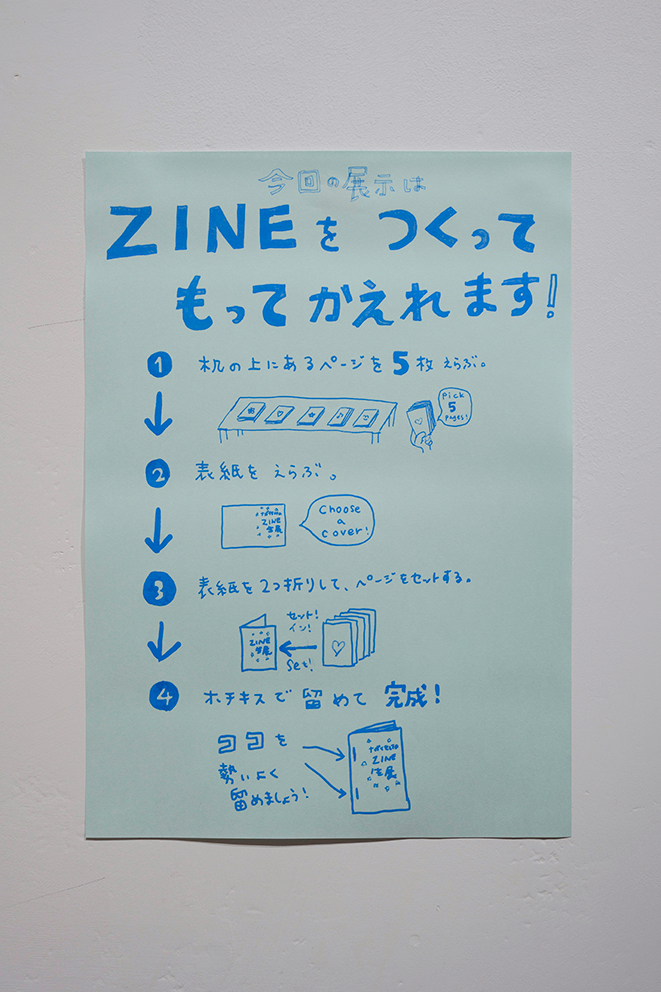 今回の展示は
ZINEを つくって
もって かえれます!
1 机の上にあるページを5枚えらぶ。
Pick
5
pages!
2 表紙を えらぶ。
ZINE
Choose
a
cover!
3 表紙を2つ折りして、ページをセットする。
ZINE
セット!
イン!
Set!
4 ホチキスで 留めて 完成!
ココを
勢いよく
留めましょう!
ZINE